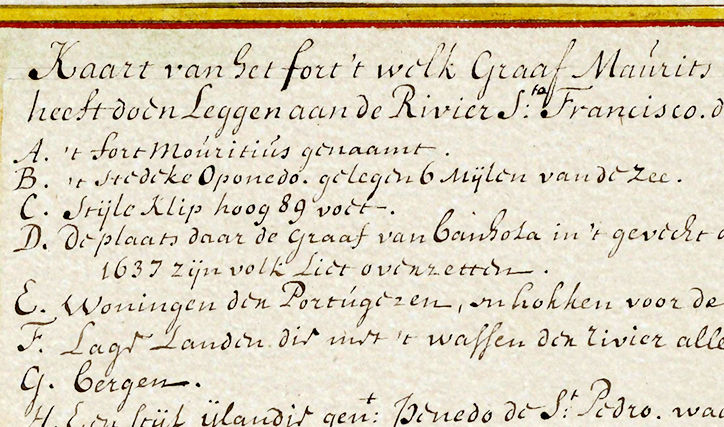 Kaart van het fort 't welk Graaf Maurits
heeft doen Leggen aan de Rivier S.ta Francisco. d
A. 't fort Mouritius genaamt.
B. 't stedeke Oponedo. gelegen 6 Mijlen van de Zee.
C. Stijle Klip hoog 89 voet.
D. De plaats daar de Graaf van Banhola in 't gevecht
1637 zijn volk Liet overzetten.
E. Woningen der Portúgezen, en hokken voor de
F. Lage Landen die met 't wassen der rivier alle
G. bergen.
H. Een stijl ijlandie gent: Penedo de St Pedro. waa